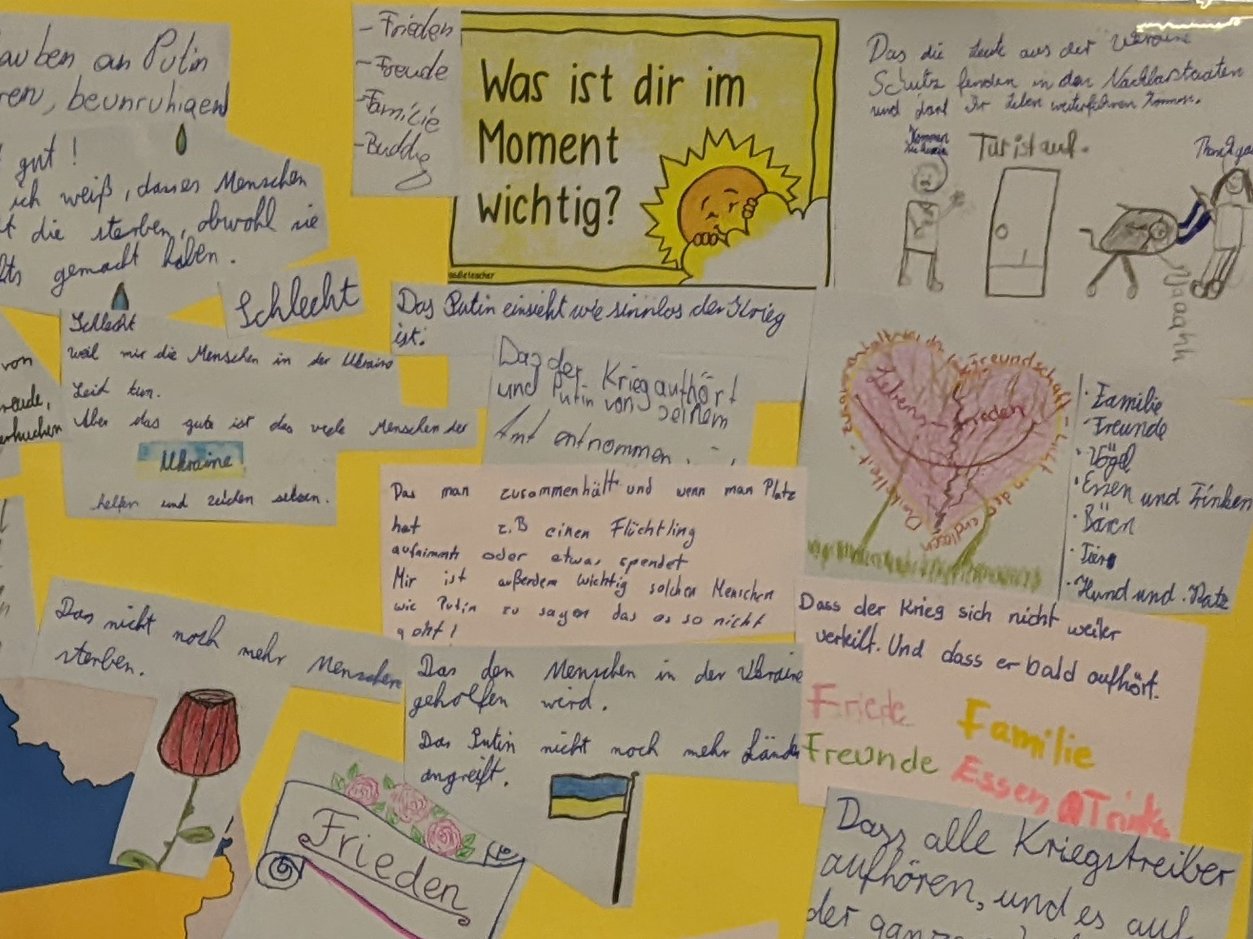 auben an Putin
ren, beunruhigend
gut!
ich weiß, dass es Menschen
die sterben, obwohl sie
gemacht haben.
Schlecht
Schlecht
weil mir die Menschen in der Ukraine
Leid tun.
Aber das gute ist das viele Menschen der
Ukraine
helfen und zeichen setzen.
von
-Frieden
-Freude
-Familie
-Buddy
Was ist dir im
Moment
wichtig?
Das die Leute aus der Ukraine
Schutz fenden in den Nachbarstaaten
und dort Ihr Leben weiterführen können.
Kommen
Sie herein
Tür ist auf.
Yaaahh
Das Putin einsieht wie sinnlos der Krieg
ist.
Das der Krieg aufhört
und Putin von seinem
Amt entnommen
Leben
Frieden
· Familie
· Freunde
· Vögel
· Essen und Trinken
· Bären
· Tiere
· Hund und Katze
Das man zusammenhält und wenn man Platz
hat z.B einen Flüchtling
aufnimmt oder etwas spendet
Mir ist außerdem wichtig solchen Menschen
wie Putin zu sagen das es so nicht
geht!
Das nicht noch mehr Menschen
sterben.
Das den Menschen in der Ukraine
geholfen wird.
Das Putin nicht noch mehr Länder
angreift.
Dass der Krieg sich nicht weiter
verteilt. Und dass er bald aufhört.
Friede Familie
Freunde Essen Trinke
Frieden
Dass alle Kriegstreiber
aufhören, und es auf
der ganze